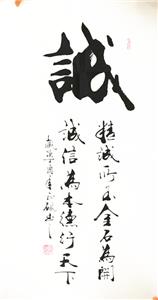 誠
精誠所至金石為開
誠信為本德行天下